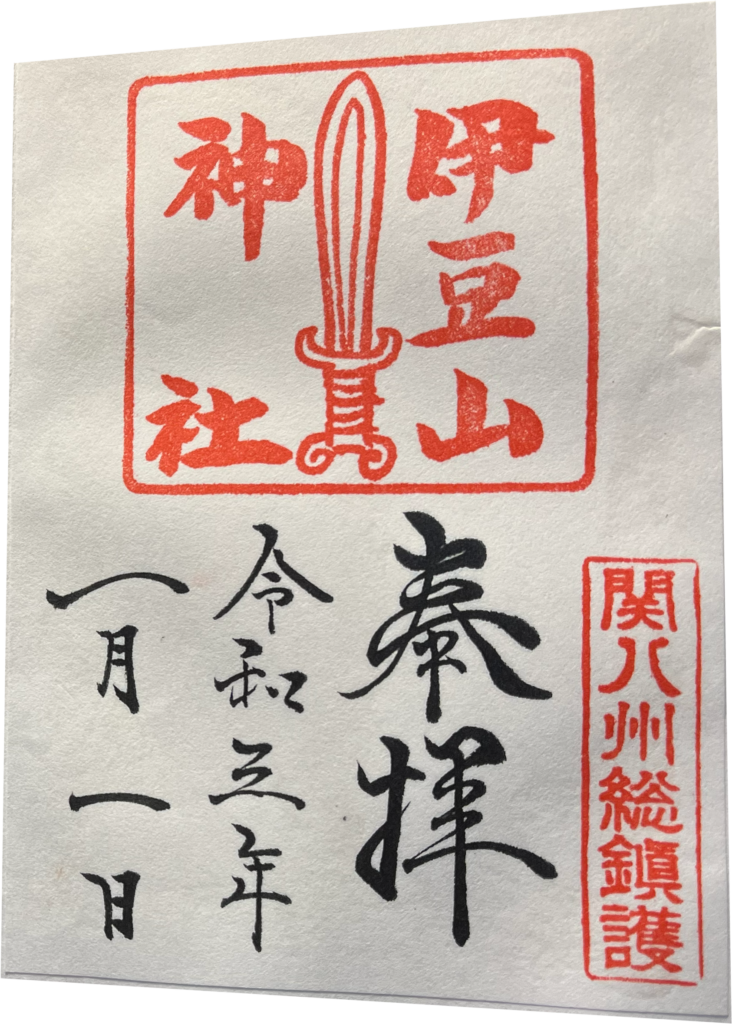 伊豆山
神社
関八州総鎮護
奉拝
令和三年
一月一日